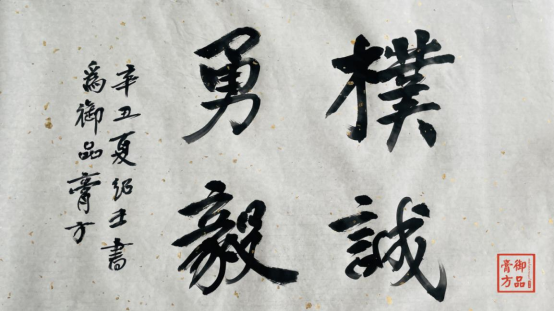 樸誠
勇毅
辛丑夏紹士書
為御品膏方
御品
膏方